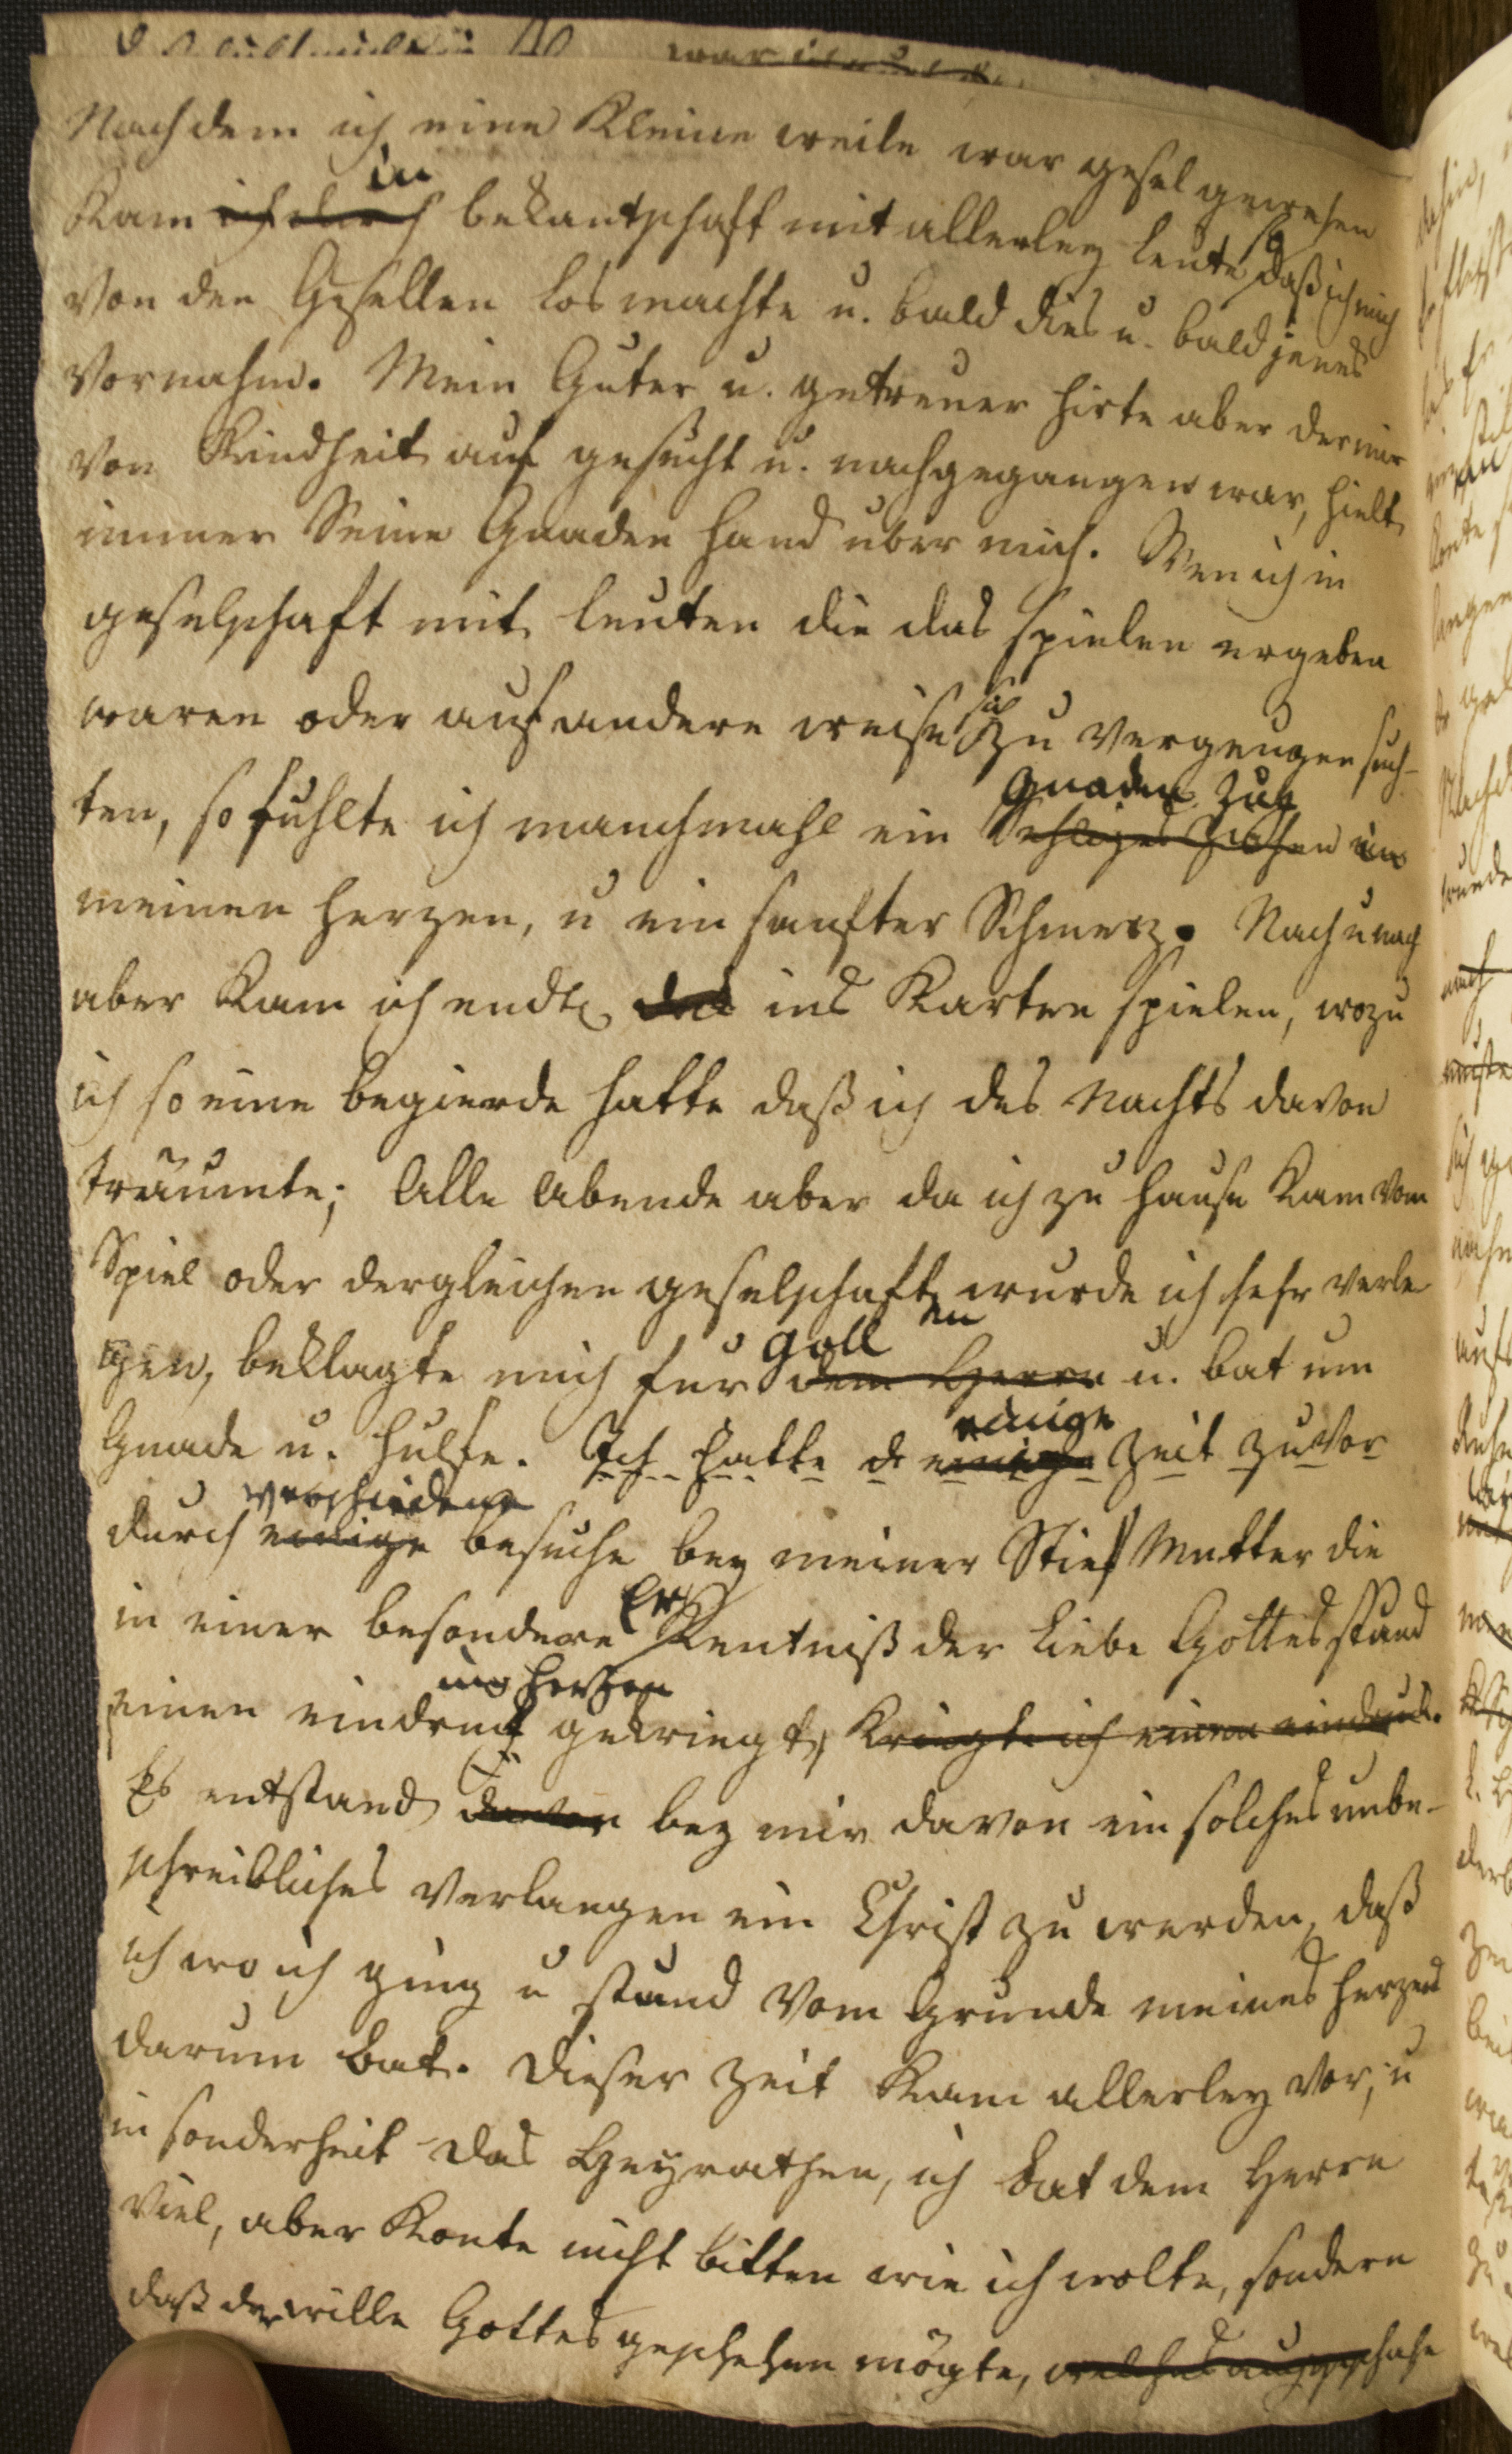 Nachdem ich eine Kleine weile war gesel gewesen
in
Kam ich durch bekantschaft mit allerley leute so daß ich mich
von den Gesellen los machte u. bald dies u. bald jenes
vornahm. Mein Guter u. getreuer Hirte aber der mir
von Kindheit auf gesucht u. nachgegangen war, hielt
immer Seine Gnaden hand uber mich. Wen ich in
geselschaft mit leuten die das spielen ergeben
waren oder auf andere weise sich zu vergnugen such-
gnaden Zug
ten, so fuhlte ich manchmahl ein Ziehen in
meinen herzen, u ein sanfter Schmerz. Nach u nach
aber Kam ich endl. das ins Karten spielen, wozu
ich so eine begierde hatte daß ich des Nachts davon
träumte; Alle Abende aber da ich zu hause Kam vom
Spiel oder dergleichen geselschaften wurde ich sehr verle
gott
gen, beklagte mich fur dem Herrn u. bat um
einige
Gnade u. hulfe. Ich hatte einige Zeit zuvor
verschiedene
durch einige besuche bey meiner Stief Mutter die
in einer besondere Erkentniß der Liebe Gottes stund
im herzen
einen eindruck gekriegt, Kriegte ich einen eindruck.
Es entstand davon bey mir davon ein solches unbe-
schreibliches Verlangen ein Christ zu werden, daß
ich wo ich ging u stund vom Grunde meines herzens
darum bat. Dieser Zeit Kam allerley vor, u
in sonderheit das Heyrathen, ich bat dem Herrn
viel, aber Konte nicht bitten wie ich wolte, sondern
daß der wille Gottes geschehen mögte, welches auch geschahe